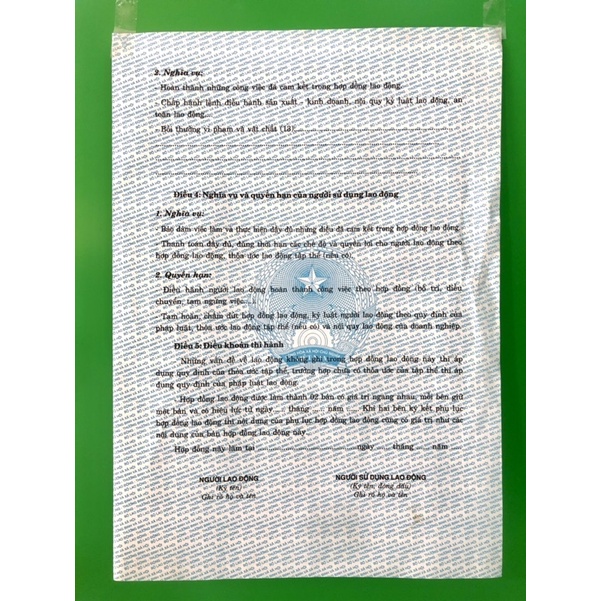 2. Nghĩa vụ:
- Hoàn thành những công việc đã cam kết trong hợp đồng lao động.
- Chấp hành lệnh điều hành sản xuất - kinh doanh, nội quy kỷ luật lao động, an
toàn lao động...
- Bồi thường vi phạm và vật chất (13)......................................................
....................................................................................................
....................................................................................................
....................................................................................................
Điều 4: Nghĩa vụ và quyền hạn của người sử dụng lao động
1. Nghĩa vụ:
- Bảo đảm việc làm và thực hiện đầy đủ những điều đã cam kết trong hợp đồng lao động.
- Thanh toán đầy đủ, đúng thời hạn các chế độ và quyền lợi cho người lao động theo
hợp đồng lao động, thỏa ước lao động tập thể (nếu có).
2. Quyền hạn:
- Điều hành người lao động hoàn thành công việc theo hợp đồng (bố trí, điều
chuyển, tạm ngừng việc....)
- Tạm hoãn, chấm dứt hợp đồng lao động, kỷ luật người lao động theo quy định của
pháp luật, thỏa ước lao động tập thể (nếu có) và nội quy lao động của doanh nghiệp.
Điều 5: Điều khoản thi hành
- Những vấn đề về lao động không ghi trong hợp đồng lao động này thì áp
dụng quy định của thỏa ước tập thể, trường hợp chưa có thỏa ước của tập thể thì áp
dụng quy định của pháp luật lao động.
- Hợp đồng lao động được làm thành 02 bản có giá trị ngang nhau, mỗi bên giữ
một bản và có hiệu lực từ ngày .... tháng .... năm .... Khi hai bên ký kết phụ lục
hợp đồng lao động thì nội dung của phụ lục hợp đồng lao động cũng có giá trị như các
nội dung của bản hợp đồng lao động này.
Hợp đồng này làm tại ................................ ngày ...... tháng ...... năm ......
NGƯỜI LAO ĐỘNG NGƯỜI SỬ DỤNG LAO ĐỘNG
(Ký tên) (Ký tên, đóng dấu)
Ghi rõ họ và tên Ghi rõ họ và tên